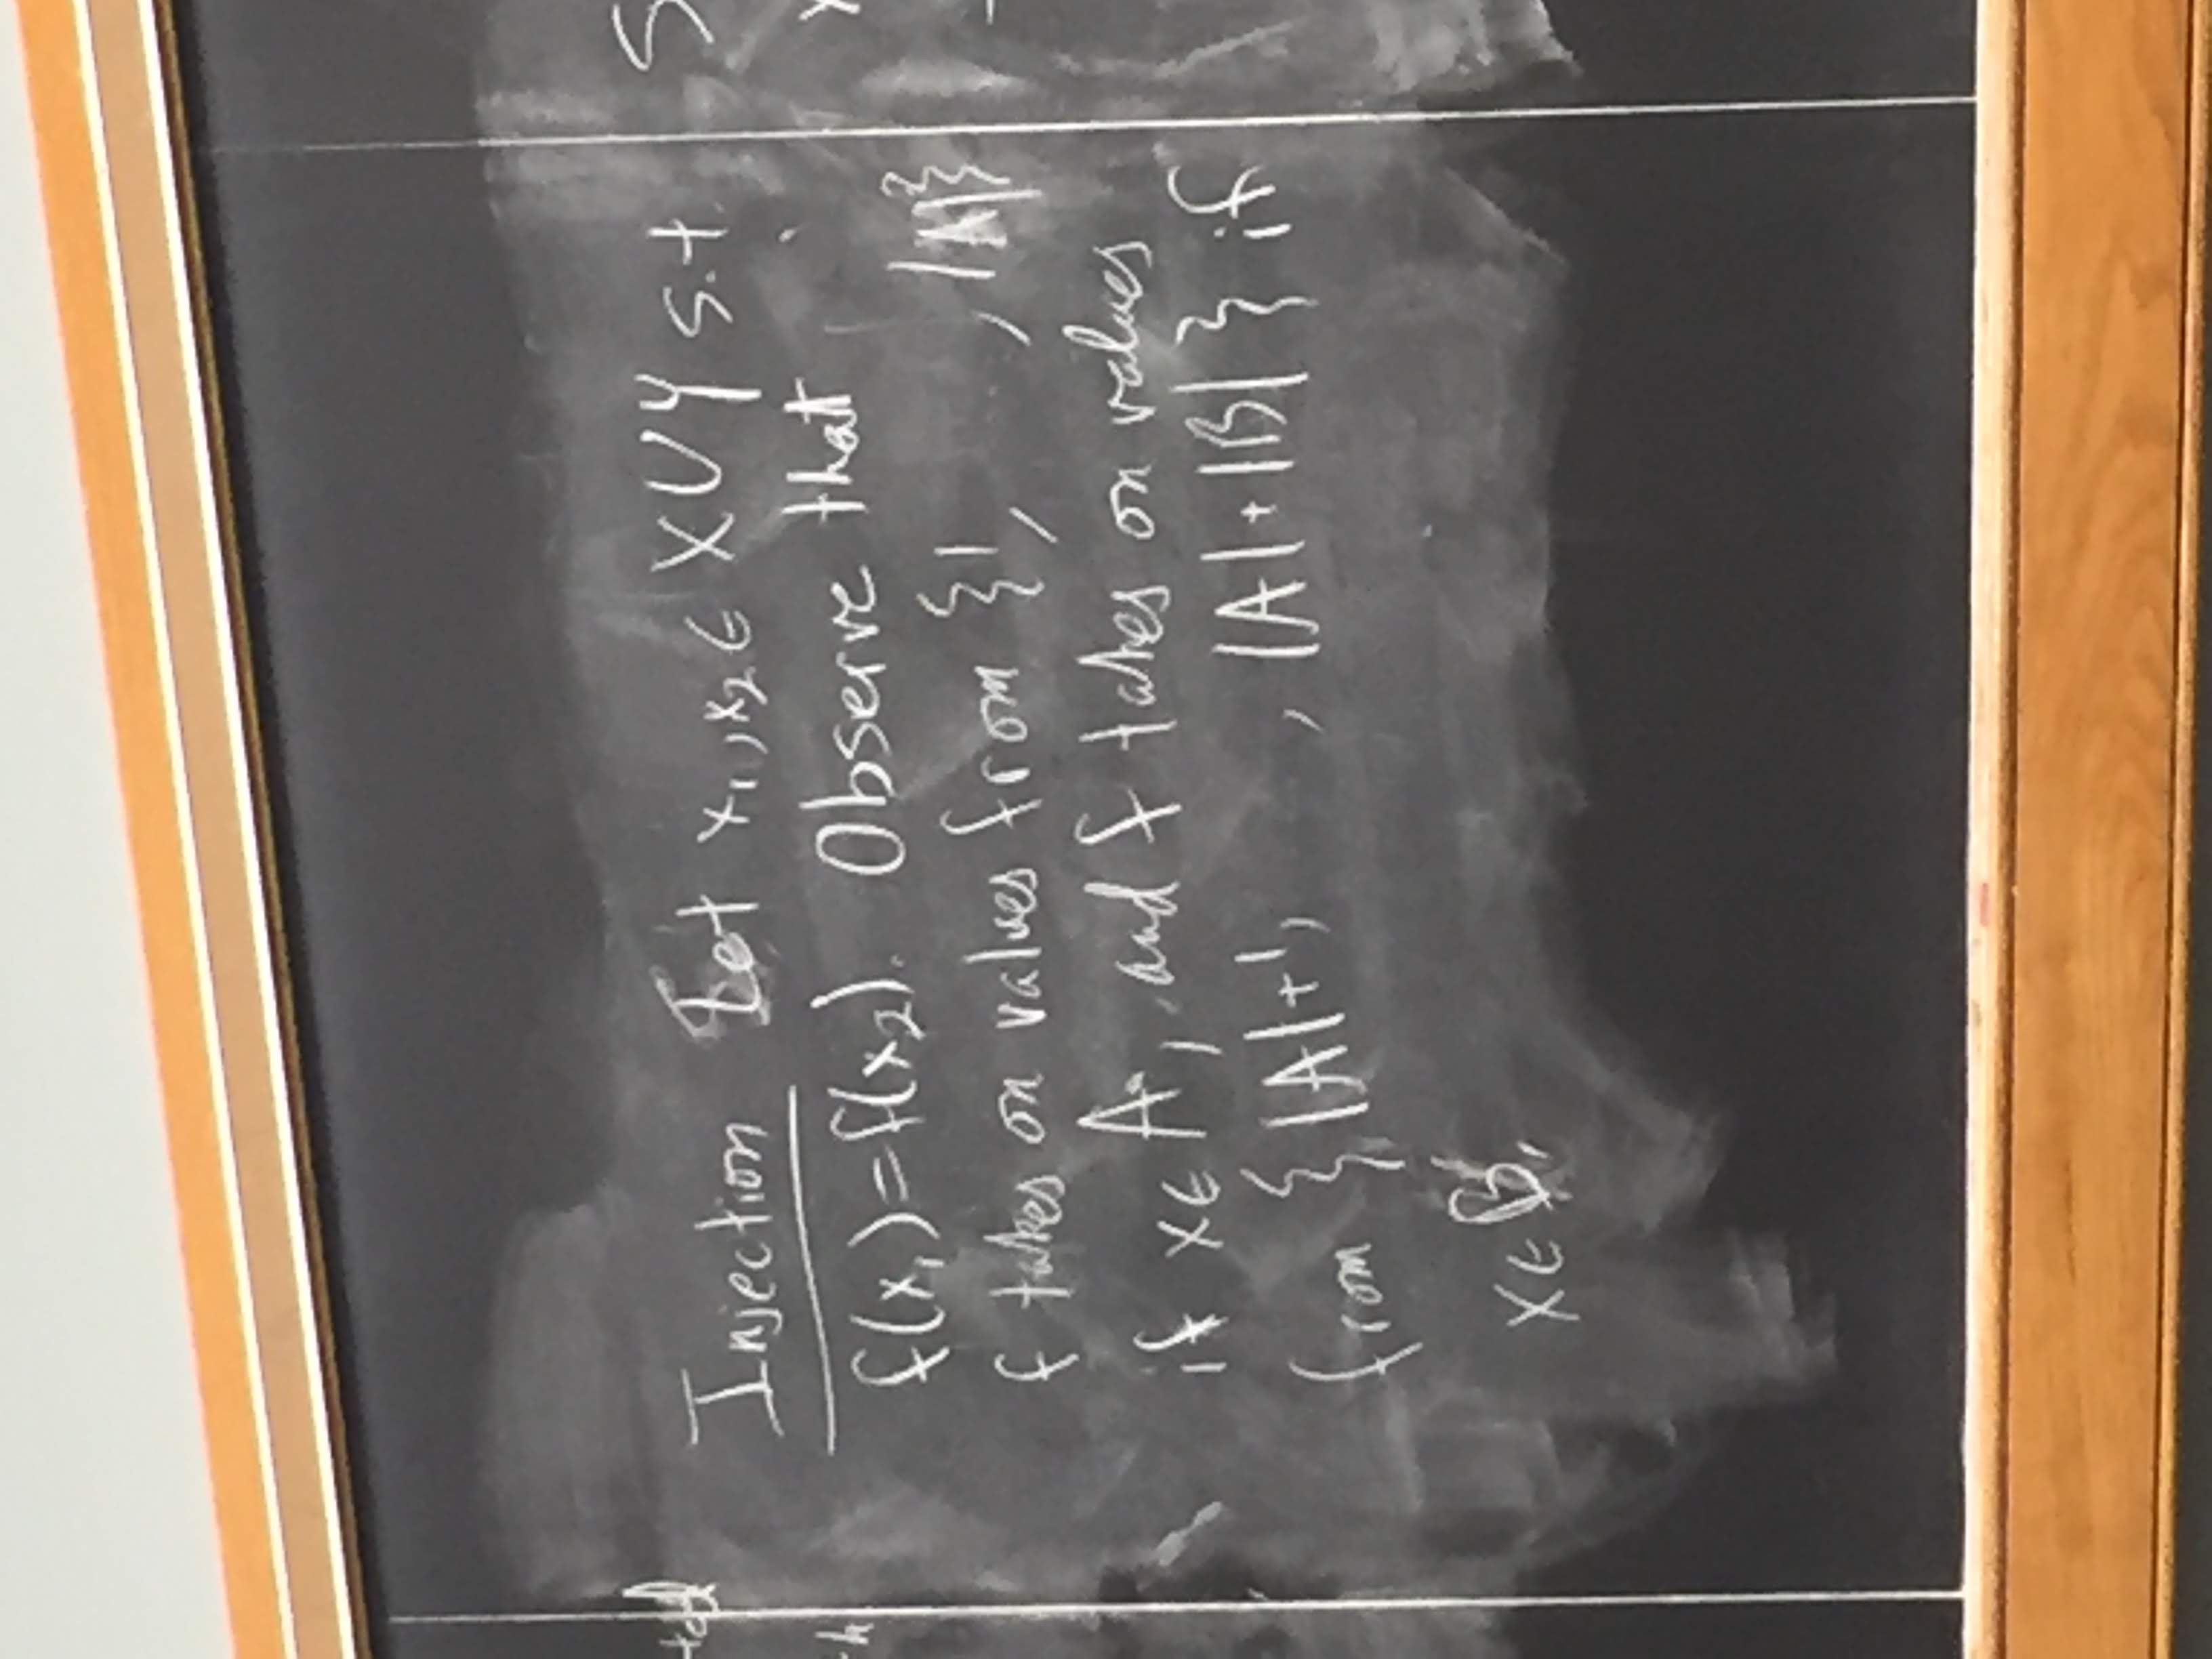 Injection Let x₁,x₂ ∈ X∪Y s.t.
f(x₁)=f(x₂). Observe that
f takes on values from {1, , |A|}
if x∈A, and f takes on values
from {|A|+1, , |A|+|B|} if
x∈B,